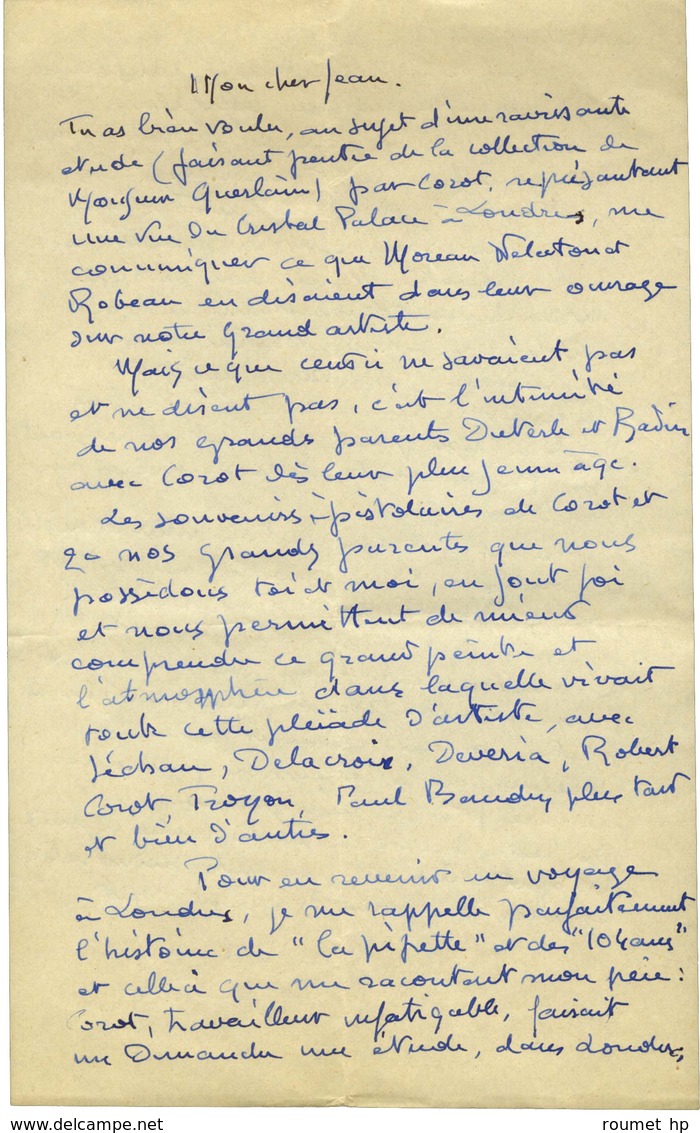 Mon cher Jean.
Tu as bien voulu, au sujet d'une ravissante
étude (faisant partie de la collection de
Monsieur Guerlain) par Corot, représentant
une vue du Cristal Palace à Londres, me
communiquer ce que Moreau Nelaton et
Robeau en disaient dans leur ouvrage
sur notre grand artiste.
Mais ce que ceux ci ne savaient pas
et ne disent pas, c'est l'intimité
de nos grands parents Dieterle et
avec Corot dès leur plus jeune âge.
Les souvenirs épistolaires de Corot et
de nos grands parents que nous
possédons toi et moi, en font foi
et nous permettent de mieux
comprendre ce grand peintre et
l'atmosphère dans laquelle vivait
toute cette pleïade d'artiste, avec
Séchan, Delacroix, Deveria, Robert
Corot Troyon, Paul Baudry plus tard
et bien d'autres.
Pour en revenir au voyage
à Londres, je me rappelle parfaitement
l'histoire de "la pipette" et des "104 ans"
et celle ci que me racontait mon père :
Corot, travailleur infatigable, faisait
un Dimanche une étude, dans Londres,
roumet hp